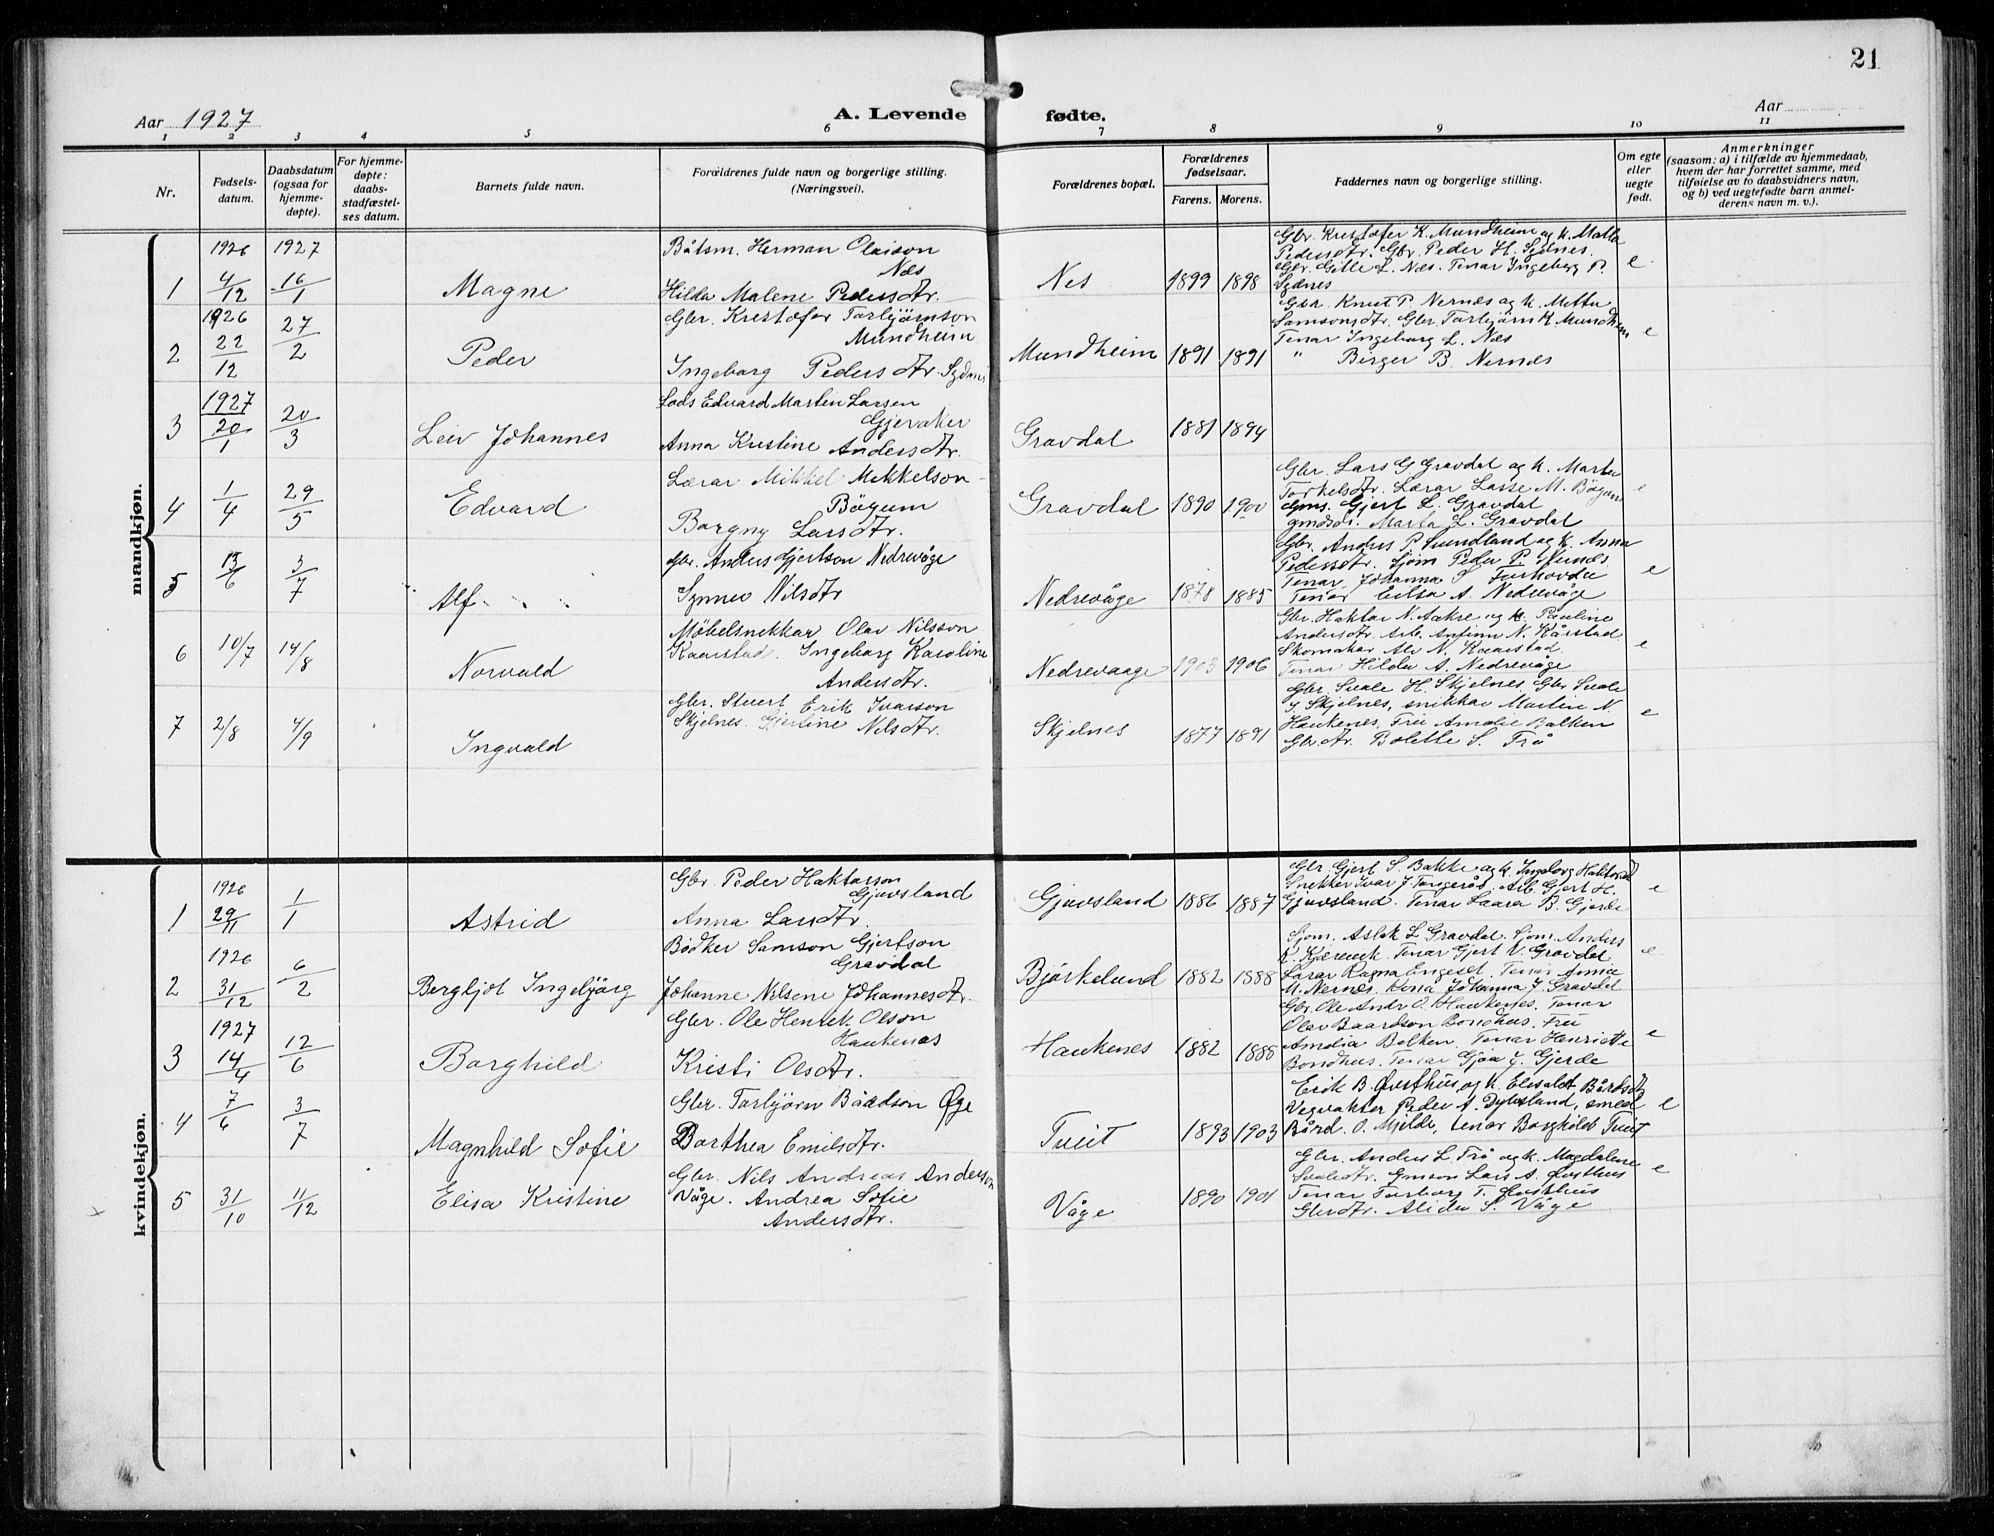 21
Aar 1927
A. Levende fødte.
Aar
1 2 3 4 5 6 7 8 9 10 11
Nr.
Fødsels-
datum.
Daabsdatum
(ogsaa for
hjemme-
døpte).
For hjemme-
døpte:
daabs-
stadfæstel-
ses datum.
Barnets fulde navn.
Forældrenes fulde navn og borgerlige stilling.
(Næringsvei).
Forældrenes bopæl.
Forældrenes
fødselsaar.
Farens. Morens.
Faddernes navn og borgerlige stilling.
Om egte
eller
uegte
født.
Anmerkninger
(saasom: a) i tilfælde av hjemmedaab,
hvem der har forrettet samme, med
tilføielse av to daabsvidners navn,
og b) ved uegtefødte barn anmel-
derens navn m. v.).
mandkjøn.
1
1926 4/12
1927 16/1
Magne
Båtsm. Herman Olaison
Næs
Hilda Malene Pedersdtr.
Nes
1899 1898
Gbr. Kristofer K. Mundheim og k. Matta
Pedersdtr. Gbr. Peder H. Sydnes.
Gbr. Gitle L. Næs. Tenar Ingeborg P.
Sydnes
e
2
1926 22/12
27/2
Peder
Gbr. Kristofer Torbjørnson
Mundheim
Ingeborg Pedersdtr. Sydnes
Mundheim
1891 1891
Gbr. Knut P. Nernes og k. Metta
Samsonsdtr. Gbr. Torbjørn K. Mundheim
Tenar Ingeborg L. Næs
" Birger B. Nernes
e
3
1927 20/1
20/3
Leiv Johannes
Lods Edvard Martin Larsen
Gjeraker
Anna Kristine Andersdtr.
Gravdal
1881 1894
4
1/4
29/5
Edvard
Lærar Mikkel Mikkelson
Bøgum
Borgny Larsdtr.
Gravdal
1890 1900
Gbr. Lars G. Gravdal og k. Marta
Torkelsdtr. Lærar Lasse M. Bøgum
Gms. Gjert L. Gravdal
gmdsdr. Marta L. Gravdal
e
5
13/6
3/7
Alf
Gbr. Anders Gjertson Nedrevåge
Synnev Nilsdtr
Nedrevåge
1878 1885
Gbr. Anders P. Sundland og k. Anna
Pedersdtr. Sjøm Peder P. Nernes
Tenar Johanna S. Torhovde
Tenar Eilsa A. Nedrevåge
e
6
10/7
14/8
Norvald
Møbelsnekkar Olav Nilsson
Kaarstad. Ingeborg Karoline
Andersdtr.
Nedrevaage
1903 1906
Gbr. Haktor N. Aakre og k. Pauline
Andersdtr. Arb. Anfinn N. Kårstad
Skomaker Alv N. Kaarstad.
Tenar Hilda A. Nedrevåge
e
7
2/8
4/9
Ingvald
Gbr. Stuert Erik Ivarson
Skjelnes. Gjertine Nilsdtr.
Skjelnes
1877 1891
Gbr. Svale H. Skjelnes, Gbr Svale
J. Skjelnes, snikkar Martin N
Haukenes, Frü Amalie Bolken
Gbrdtr. Bolette S. Trå
e
kvindekjøn.
1
1926 29/11
1/1
Astrid
Gbr. Peder Haktorson
Gjuvsland
Anna Larsdtr.
Gjuvsland
1886 1887
Gbr. Gjert S. Bakke og k. Ingeborg Haktorsdt
Snekker Ivar J Tangerås. Arb. Gjert H.
Gjuvsland. Tenar Laura B. Gjerde
e
2
1926 31/12
6/2
Bergljot Ingebjørg
Bødker Samson Gjertson
Gravdal
Johanne Nilsene Johannesdtr.
Bjørkelund
1882 1888
Sjøm. Aslak L Gravdal. Sjøm. Anders
K. Kjærevik. Tenar Gjert V. Gravdal
Lærar Ragna Engeset. Tenar Annie
M. Nernes. Kona Johanna J. Gravdal
e
3
1927 14/4
12/6
Borghild
Gbr. Ole Henrik Olson
Haukenes
Kristi Olsdtr.
Haukenes
1882 1888
Gbr. Ole Andr. O. Haukenes. Tenar
Olav Baardson Bondhus. Frü
Amalia Bolken. Tenar Henriette
Bondhus. Tenar Gjøa J. Gjerde
e
4
7/6
3/7
Magnhild Sofie
Gbr. Torbjørn Bårdson Øye
Borthea Emilsdtr.
Tveit
1893 1903
Erik B. Øvsthus og k. Elisabet Bårdsdtr
Vegvakter Peder A. Dybsland, smed
Bård O. Mjelde, tenar Borghild Tveit
e
5
31/10
11/12
Elisa Kristine
Gbr. Nils Andreas Anderson
Våge. Andrea Sofie
Andersdtr.
Våge
1890 1901
Gbr. Anders L. Trå og k. Magdalene
Svaledtr. Gmson Lars A. Øvsthus
Tenar Torborg T. Øvsthus
Gbrdtr. Alida S. Våge
e